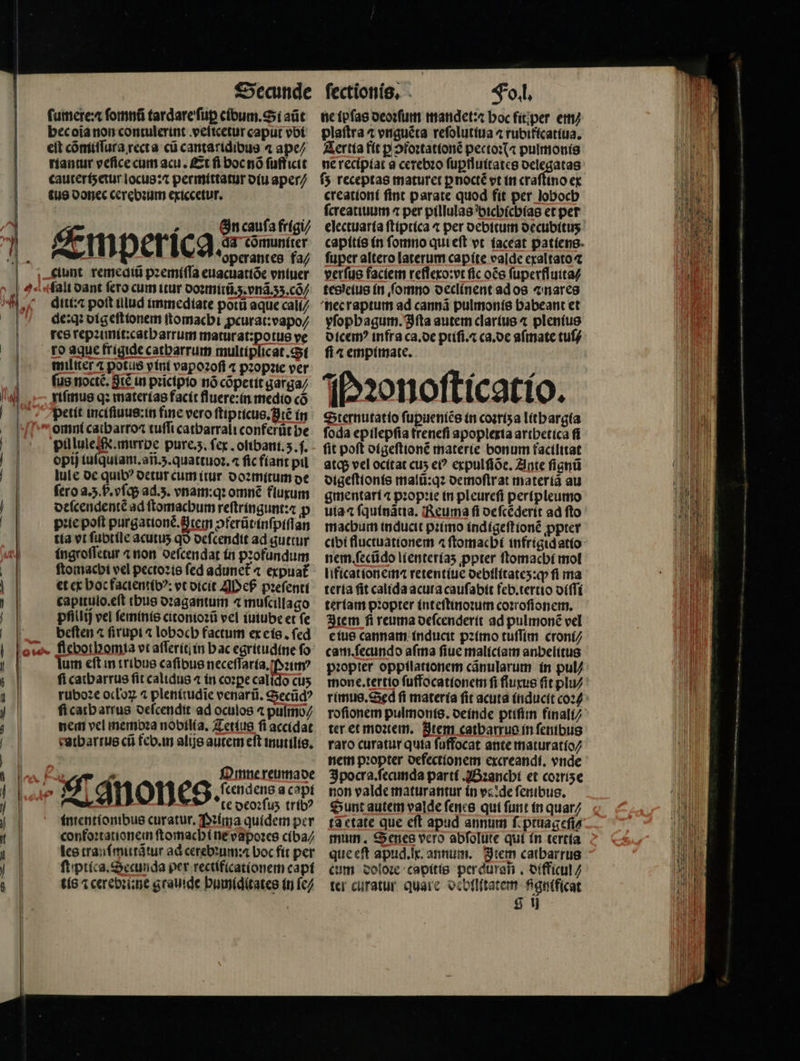 Secunde
ſumere:⁊ ſomnũ tardare ſuꝑ cibum. Si aũt
hec oĩa non contulerint .veſicetur caput vbi
eſt cõmiſſura recta cũ cantaridibus ⁊ ape/
riantur veſice cum acu. Et ſi hoc nõ ſufficit
cauterisetur locus:⁊ permittatur diu aper/
tus donec cerebrum exiccetur.
In cauſa frigi/
Emperica. da cõmuniter
operantes fa/
ciunt remediũ premiſſa euacuatiõe vniuer
ſali dant ſero cum itur dormitũ.ʒ.vnã.ʒʒ.cõ/
diti:⁊ poſt illud immediate potũ aque cali/
de:qꝛ digeſtionem ſtomachi ꝓcurat:vapo/
res reprimit:catharrum maturat:potus ve
ro aque frigide catharrum multiplicat. Si
militer ⁊ potus vini vaporoſi ⁊ proprie ver
ſus noctẽ. Itẽ in pricipio nõ cõpetit garga/
riſmus qꝛ materias facit fluere:in medio cõ
petit inciſiuus:in fine vero ſtipticus. Itẽ in
omni catharro⁊ tuſſi catharrali conferũt he
pillule. ℞. mirrhe pure.ʒ. ſex. olibani.ʒ.ſ.
opij iuſquiani.añ.ʒ.quattuor. ⁊ ſic fiant pil
lule de quibꝰ detur cum itur dormitum de
ſero a.ʒ.ß.vſqꝫ ad.ʒ. vnam:qꝛ omnẽ fluxum
deſcendentẽ ad ſtomachum reſtringunt:⁊ ꝓ
prie poſt purgationẽ. Item ↄferũt:inſpiſſan
tia vt ſubtile acutuʒ qđ deſcendit ad guttur
ingroſſetur ⁊ non deſcendat in profundum
ſtomachi vel pectoris ſed adunet̃ ⁊ expuat̃
et ex hoc facientibꝰ: vt dicit Meß preſenti
capitulo.eſt ibus dragantum ⁊ muſcillago
pſillij vel ſeminis citoniorũ vel iuiube et ſe
beſten ⁊ ſirupi ⁊ lohoch factum ex eis. ſed
flebothomia vt aſſerit; in hac egritudine ſo
lum eſt in tribus caſibus neceſſaria. Primꝰ
ſi catharrus ſit calidus ⁊ in corpe calido cuʒ
rubore oclorꝝ ⁊ plenitudiẽ venarũ. Secũdꝰ
ſi catharrus deſcendit ad oculos ⁊ pulmo/
nem vel membra nobilia. Tetius ſi accidat
catharrus cũ feb.in alijs autem eſt inutilis.
Omne reuma de
Canones. ſcendens a capi
te deorſuʒ tribꝰ
intentionibus curatur. Prima quidem per
confortationem ſtomachi ne vapores ciba/
les tranſmittãtur ad cerebrum:⁊ hoc fit per
ſtiptica. Secunda per rectificationem capi
tis ⁊ cerebri:ne grauide humiditates in ſe/
ſectionis.
Fol.
ne ipſas deorſum mandet:⁊ hoc fit:per em/
plaſtra ⁊ vnguẽta reſolutiua ⁊ rubificatiua.
Tertia fit ꝑ ↄfortationẽ pectoris ⁊ pulmonis
ne recipiat a cerebro ſuꝑfluitates delegatas
ſʒ receptas maturet ꝑ noctẽ vt in craſtino ex
creationi ſint parate quod fit per lohoch
ſcreatiuum ⁊ per pillulas bichichias et per
electuaria ſtiptica ⁊ per debitum decubituʒ
capitis in ſomno qui eſt vt iaceat patiens
ſuper altero laterum capite valde exaltato ⁊
verſus faciem reflexo:vt ſic oẽs ſuperfluita/
tes eius in ſomno declinent ad os ⁊ nares
nec raptum ad cannã pulmonis habeant et
yſophagum. Iſta autem clarius ⁊ plenius
dicemꝰ infra ca.de ptiſi.⁊ ca.de aſmate tuſ/
ſi ⁊ empimate.
Pronoſticatio.
Sternutatio ſuꝑueniẽs in coriʒa lithargia
ſoda epilepſia freneſi apoplexia arthetica ſi
ſit poſt digeſtionẽ materie bonum facilitat
atqꝫ vel ocitat cuʒ eiꝰ expulſiõe. Ante ſignũ
digeſtionis malũ:qꝛ demoſtrat materiã au
gmentari ⁊ proprie in pleureſi peripleumo
uia ⁊ ſquinãtia. Reuma ſi deſcẽderit ad ſto
machum inducit primo indigeſtionẽ ꝓpter
cibi fluctuationem ⁊ ſtomachi infrigidatio
nem.ſecũdo lienteriaʒ ꝓpter ſtomachi mol
lificationem⁊ retentiue debilitateʒ:qꝫ ſi ma
teria ſit calida acuta cauſabit feb.tertio diſſi
teriam propter inteſtinorum corroſionem.
Item ſi reuma deſcenderit ad pulmonẽ vel
eius cannam inducit primo tuſſim croni/
cam.ſecundo aſma ſiue maliciam anhelitus
propter oppilationem cãnularum in pul/
mone.tertio ſuffocationem ſi fluxus ſit plu/
rimus. Sed ſi materia ſit acuta inducit cor/
roſionem pulmonis. deinde ptiſim finali/
ter et mortem. Item catharrus in ſenibus
raro curatur quia ſuffocat ante maturatio/
nem propter defectionem excreandi. vnde
Ipocra.ſecunda parti .Branchi et coriʒe
non valde maturantur in valde ſenibus.
Sunt autem valde ſenes qui ſunt in quar/
ta etate que eſt apud annum ſeptuageſi
mum. Senes vero abſolute qui in tertia
que eſt apud.lx. annum. Item catharrus
cum dolore capitis perdurañ. difficul/
ter curatur quare debilitatem ſignificat
g ij